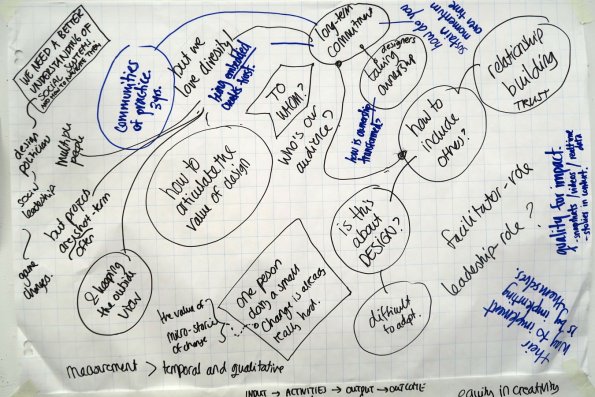 WE NEED A BETTER
UNDERSTANDING OF
SOCIAL SYSTEMS
design
politician
social
leadership
game
changes.
multiple
people
but projects
are short-term
often
Communities
of practice.
3yrs.
but we
love diversity!
being embedded
creates trust.
long-term
commitment
how do you
sustain
momentum
over time
designers
taking
ownership
how is ownership
transferred?
relationship
building
TRUST
TO
WHOM?
WHO'S OUR
AUDIENCE?
how to
include
others?
how to
articulate the
value of design
is this
about
DESIGN?
difficult
to adapt.
facilitator-role
leadership-role?
quality for impact
snapshots/videos/real time
data
- studies in context.
their
way to implement
is by implementing
themselves.
& keeping
the outside
view
one person
doing a small
change is already
really hard.
the value of
micro-stories
of change
measurement > temporal and qualitative
INPUT → ACTIVITIES → OUTPUT → OUTCOME
equity in creativity